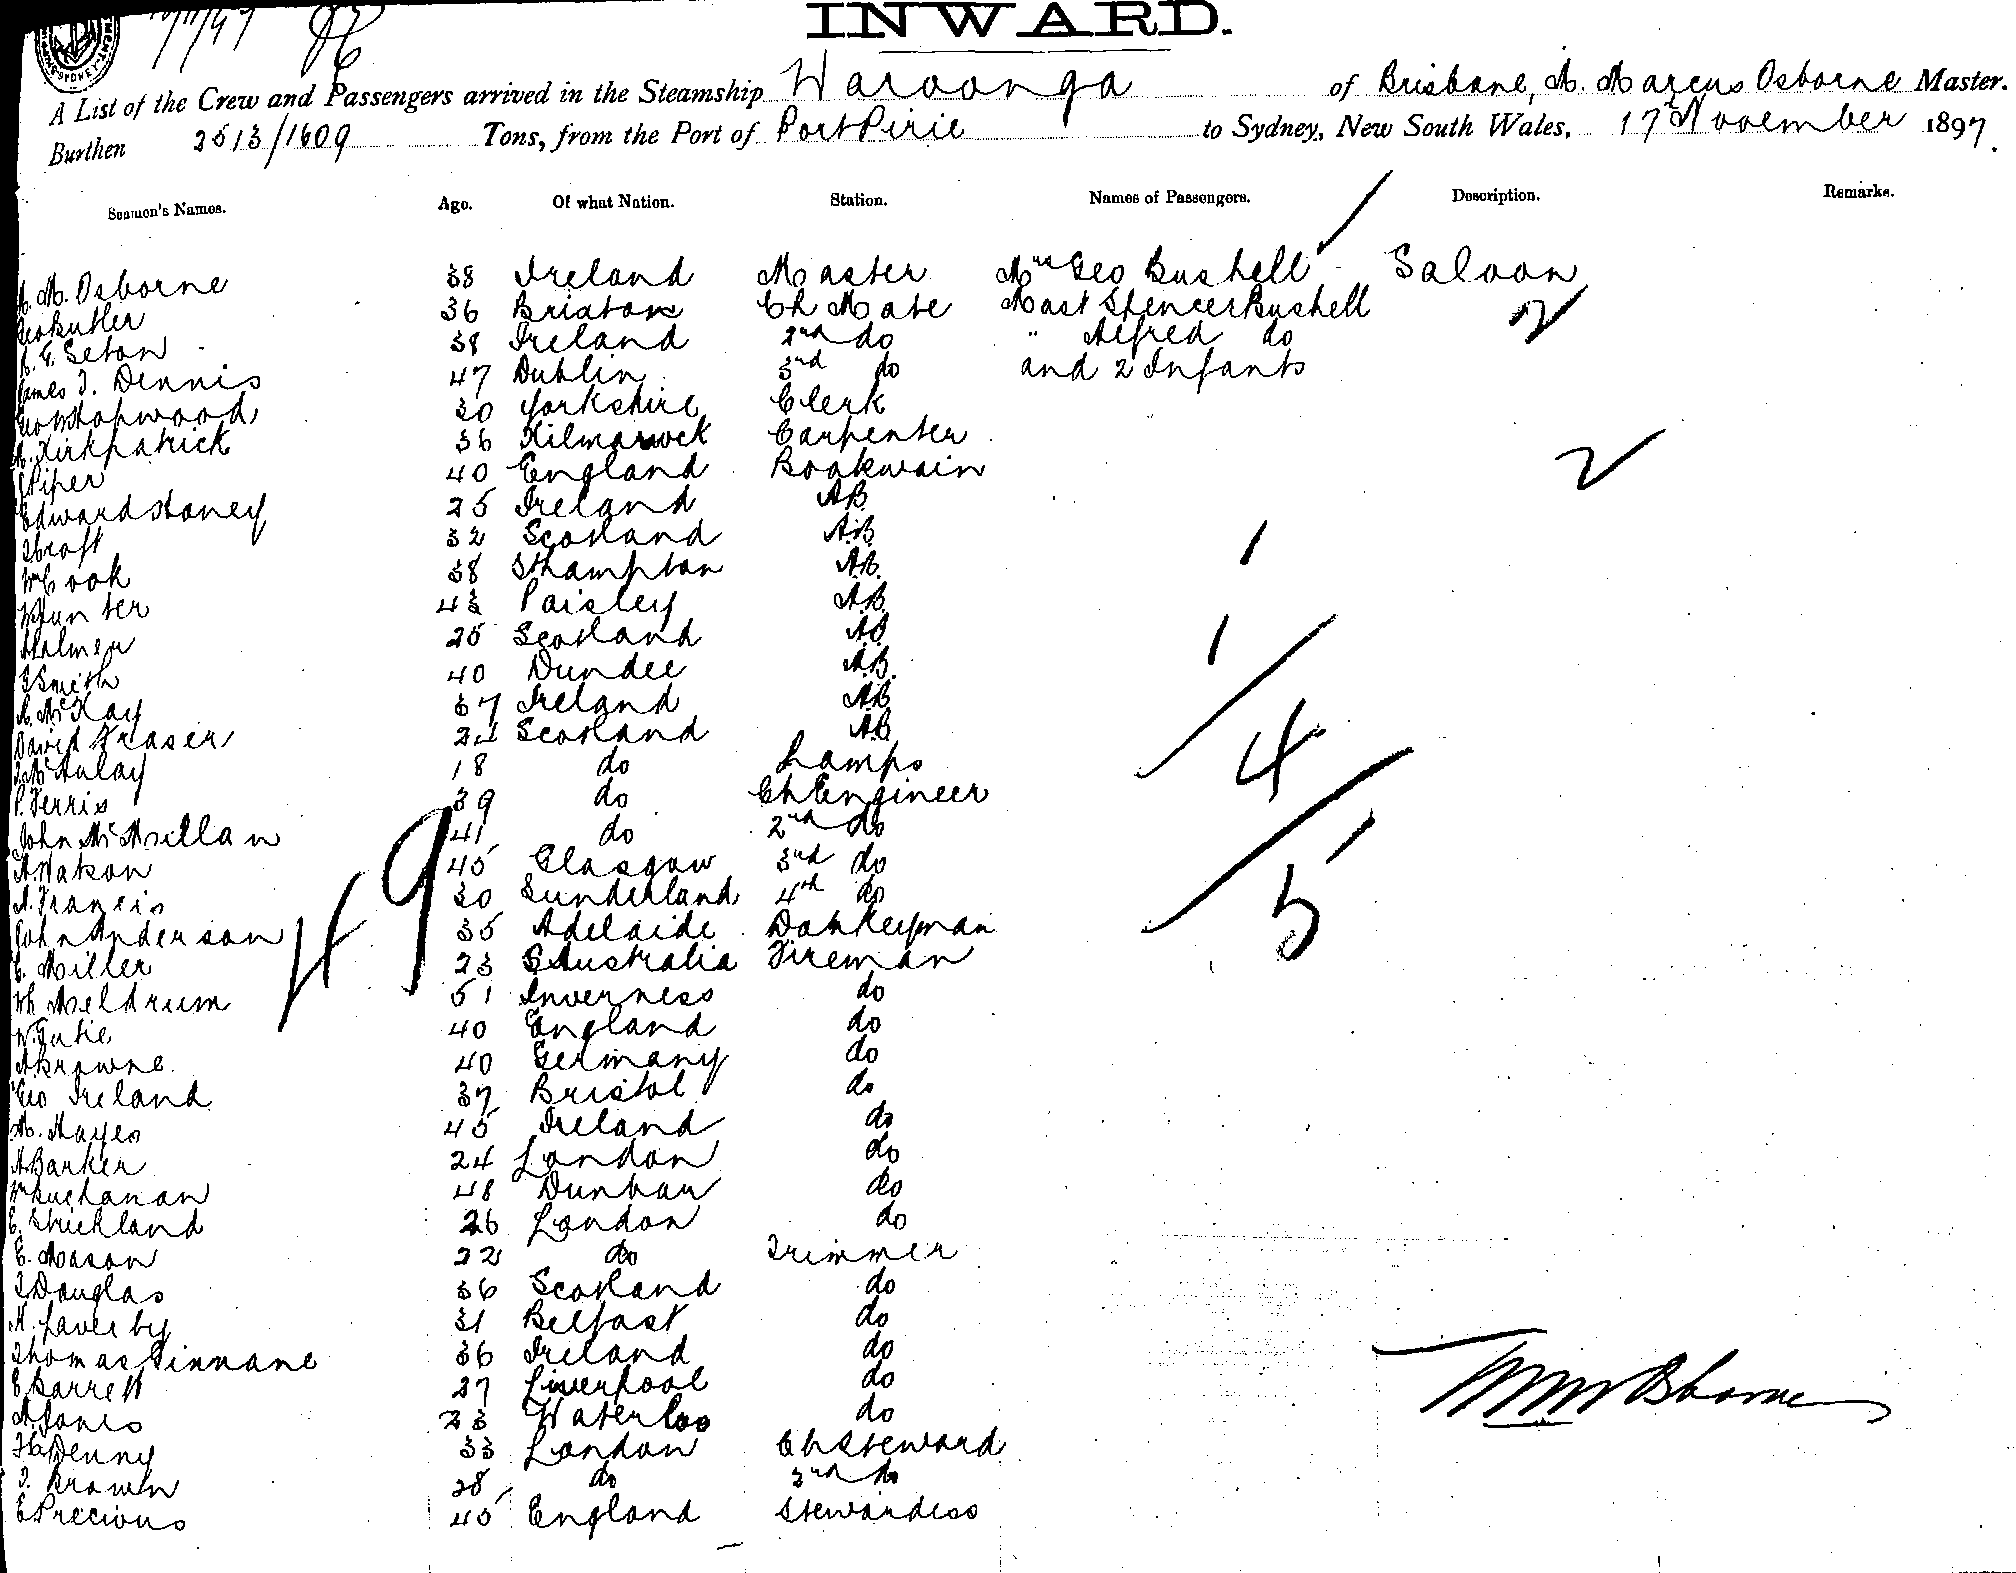 INWARD.
A List of the Crew and Passengers arrived in the Steamship Waroonga of Brisbane, A. Marcus Osborne Master.
Burthen 2513/1609 Tons, from the Port of Port Pirie to Sydney, New South Wales, 17th November 1897.
Seamen's Names. Age. Of what Nation. Station. Names of Passengers. Description. Remarks.
A. M. Osborne 38 Ireland Master Mrs Geo Bushell Saloon
Geo Butler 36 Brixton Ch Mate Mast Spencer Bushell 2
E. Seton 38 Ireland 2nd do " Alfred do
James T. Dennis 47 Dublin 3rd do and 2 Infants
Geo Hopwood 30 Yorkshire Clerk
A. Kirkpatrick 36 Kilmarnock Carpenter
Piper 40 England Boatswain 2
Edward Stoney 25 Ireland AB
Croft 32 Scotland A.B. 1
Wm Cook 38 Sthampton AB.
W Hunter 43 Paisley A.B.
Halmen 25 Scotland AB 1
Smith 40 Dundee AB.
A. McKay 37 Ireland AB
David Fraser 24 Scotland AB 4
J McAulay 18 do Lamps
P. Ferris 39 do Ch Engineer
John McMillan 41 do 2nd do 1
A. Watson 45 Glasgow 3rd do
A. Francis 30 Sunderland 4th do 5
John Anderson 35 Adelaide Donkeyman
49
C. Miller 23 S Australia Fireman
Meldrum 51 Inverness do
W. Gutie 40 England do
A Browne 40 Germany do
Geo Ireland 37 Bristol do
M. Hayes 45 Ireland do
A Barker 24 London do
Wm Buchanan 48 Dunbar do
E. Strickland 26 London do
E. Mason 22 do Trimmer
J Douglas 36 Scotland do
H. Laverty 31 Belfast do
Thomas Ginnane 36 Ireland do
E Barrett 27 Liverpool do
A. Jones 23 Waterloo do
Denny 33 London Ch Steward
J. Brown 28 do 2nd do
E Precious 45 England Stewardess
Osborne